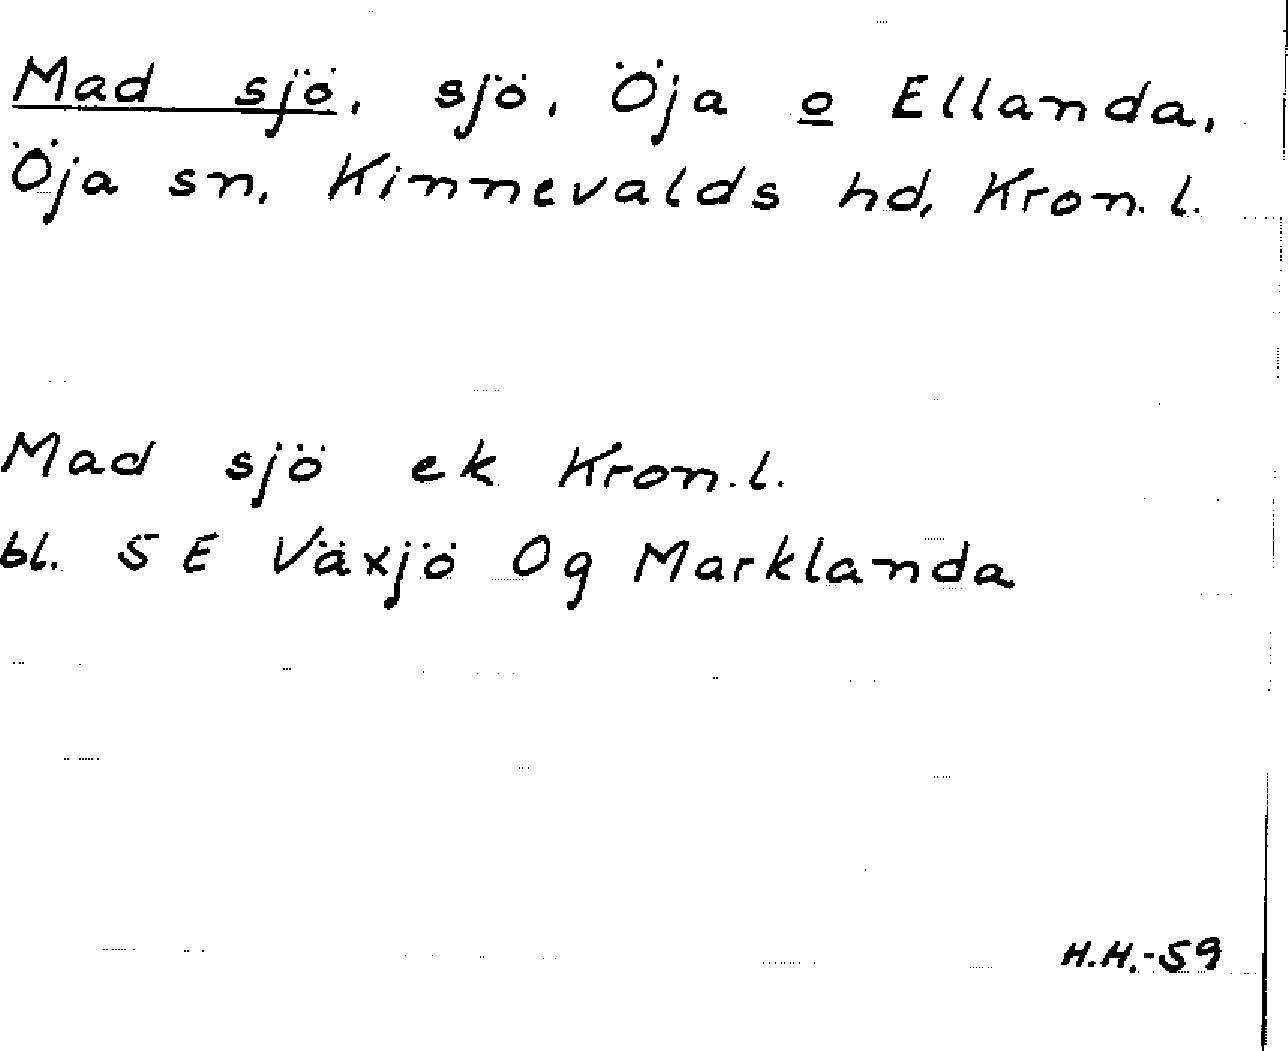 Mad sjö, sjö, Öja o Ellanda,
Öja sn, Kinnevalds hd, Kron.l.
Mad sjö ek Kron.l.
bl. 5 E Växjö Og Marklanda
H.H.-59